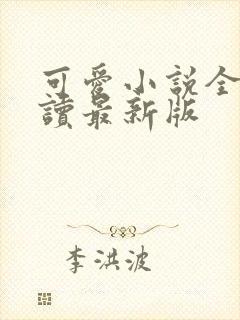 可愛小說全
讀最新版
李洪波